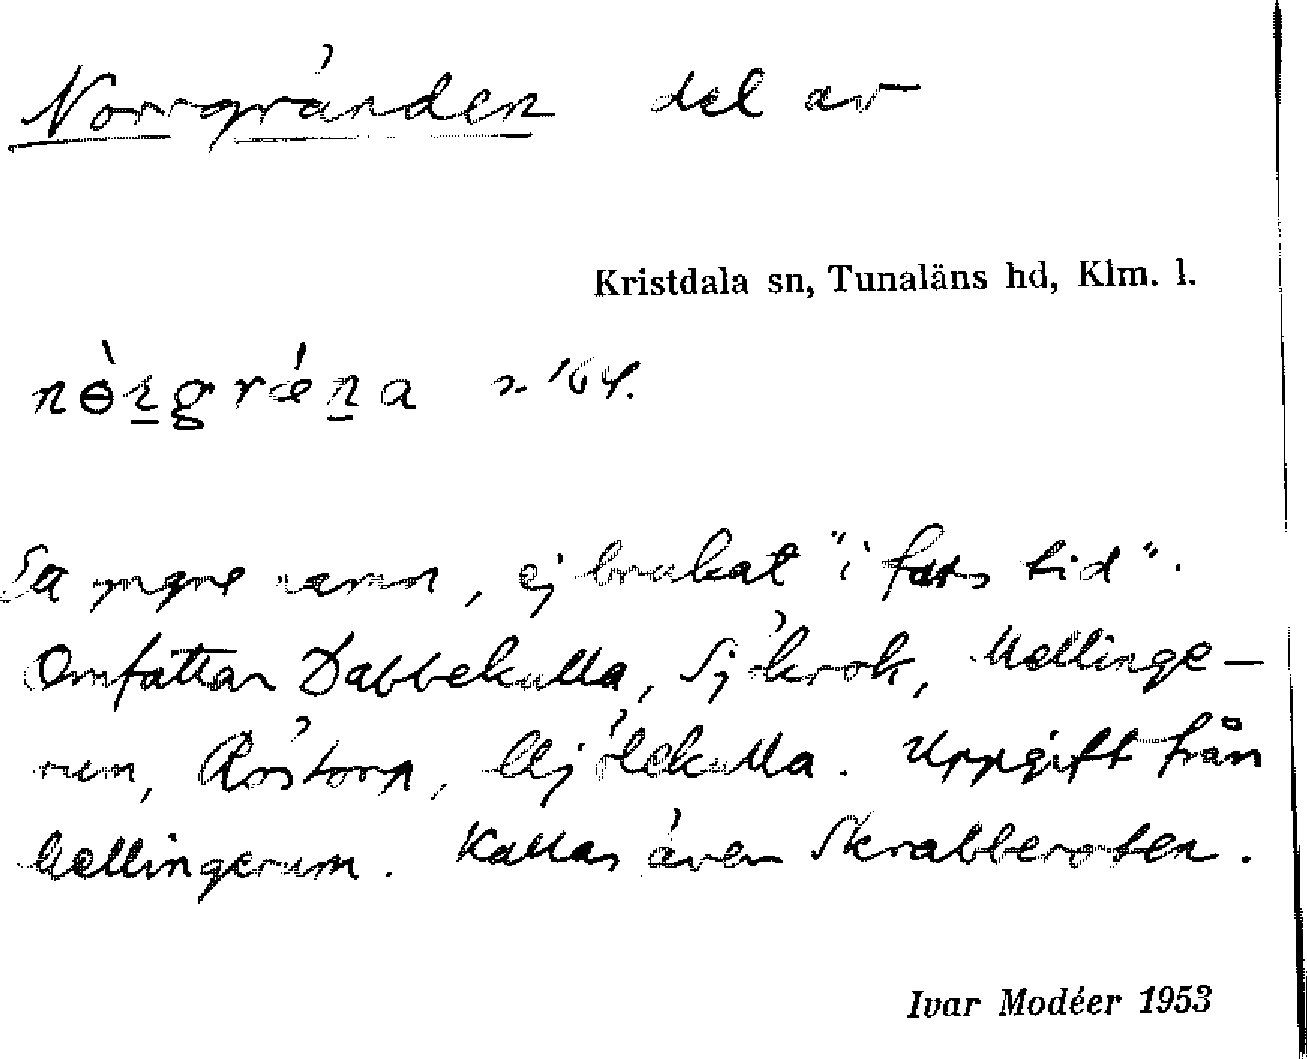 Norrgränden del av
Kristdala sn, Tunaläns hd, Klm. l.
nɵ̀rgrǽna
Ett yngre namn, ej brukat "i fars tid".
Omfattar Dabbekulla, Sjökrok, Mellinge-
rum, Röstorp, Mjölekulla. Uppgift från
Mellingerum. Kallas även Skrabberoten.
Ivar Modéer 1953